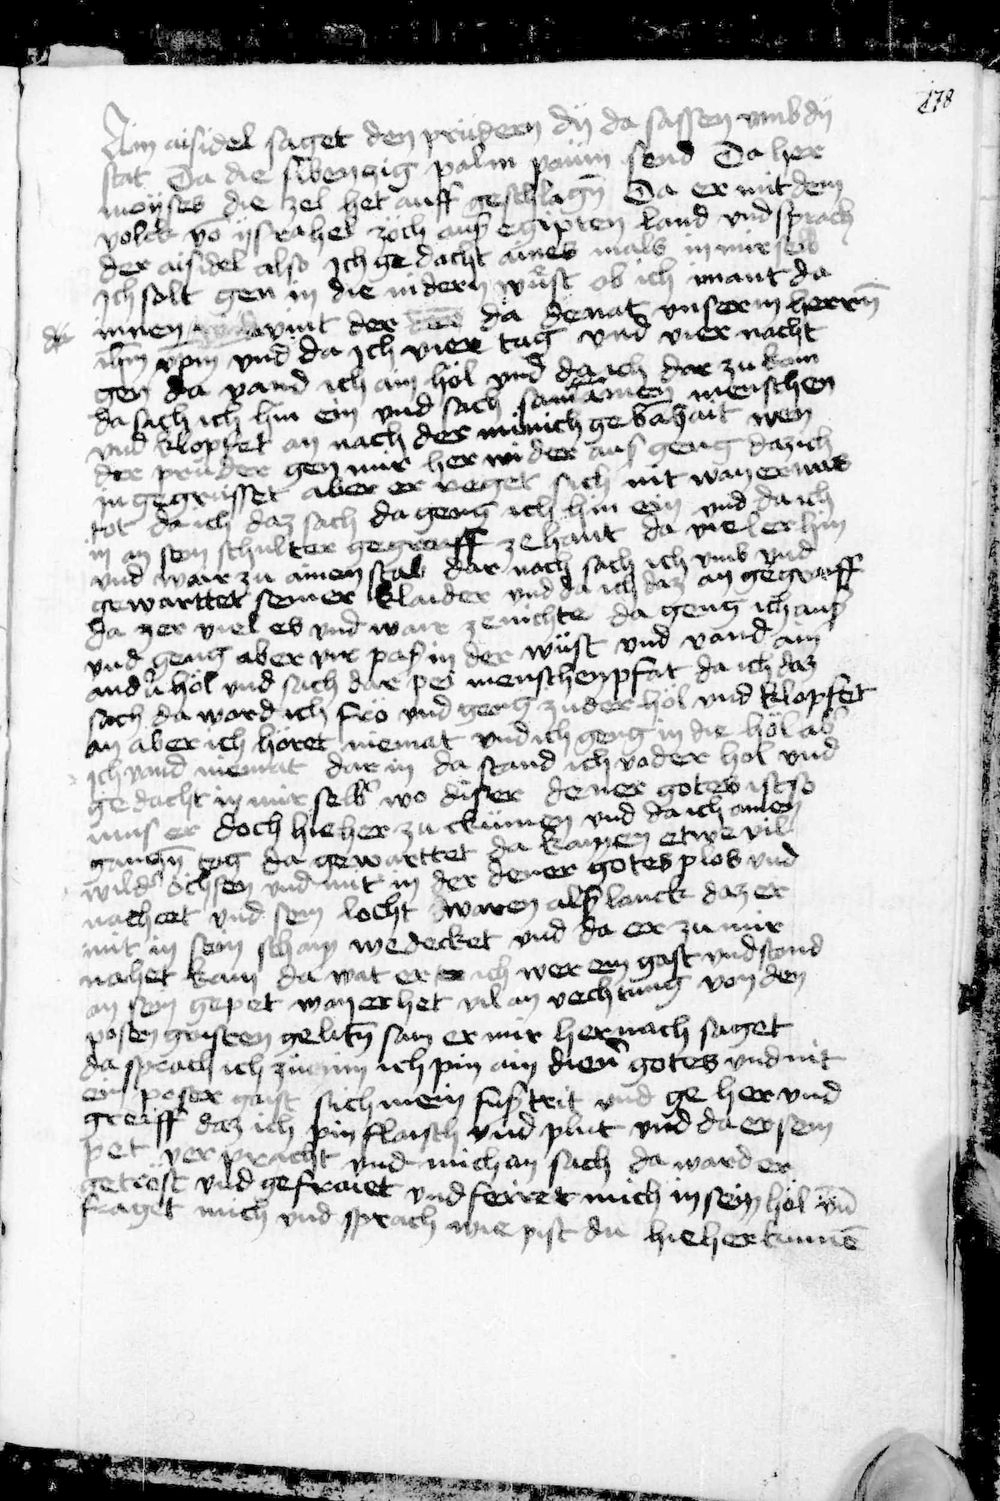 178
Ain aisidel saget den prüdern dÿ da sassen vmb dÿ
stat Da die sibenzig palm paüm send Da her
moÿses die zel het auff geschlagñ Da er mit dem
volck võ ÿsrahel zöch auß egipten land vnd sprach
der aisidel also Ich gedacht aines mals in mir selb
Ich solt gen in die nidern wüst ob ich imant da
innen vint der da dienat vnserm herrñ
ihm xpm vnd da ich vier tag vnd vier nacht
geng da vand ich ain höl vnd da ich dar zu kam
da sach ich hin ein vnd sach sam ainen menschen
vnd klopfet an nach der münich gebanhait wen
der prüder gen mir her wider auß geng daz ich
in gegrüsset aber er reget sich nit wan er was
tot da ich daz sach da geng ich hin ein vnd da ich
in an sein schulter gegraiff ze hant da viel er hin
vnd wair zu ainen stab dar nach sach ich vmb vnd
gewarttet seiner klaider vnd da ich daz an gegraiff
da zer viel es vnd wair ze nichte da geng ich auß
vnd geng aber vir paß in der wüst vnd vand ain
andr höl vnd sach dar peÿ menschen pfat da ich daz
sach da ward ich fro vnd geng zu der höl vnd klopfet
an aber ich höret niemat vnd ich geng in die höl ab
ich vand niemat dar in da stand ich vor der hol vnd
gedacht in mir selb wo diser diener gotes ist so
mus er doch hie her zu ckümen vnd da ich ainen
gancñ tag da gewarttet da kamen etwe vil
wildr öchsen vnd mit in der diener gotes plos vnd
nachat vnd sein locht waren alß lanck daz er
mit in sein scham wedecket vnd da er zu mir
nahet kam da wat er ich wer ein gast vnd stand
an sein gepet wan er het vil an vechtung von den
posen gaisten gelitñ sam er mir her nach saget
da sprach ich zü im ich pin ain diener gotes vnd nit
ein poser gaist sich mein fußtrit vnd ge her vnd
greiff daz ich pin flaisch vnd plut vnd da er sein
pet ver pracht vnd mich an sach da ward er
getröst vnd gefraiet vnd ferret mich in sein höl vñ
fraget mich vnd sprach wie pist du hie her kumẽ